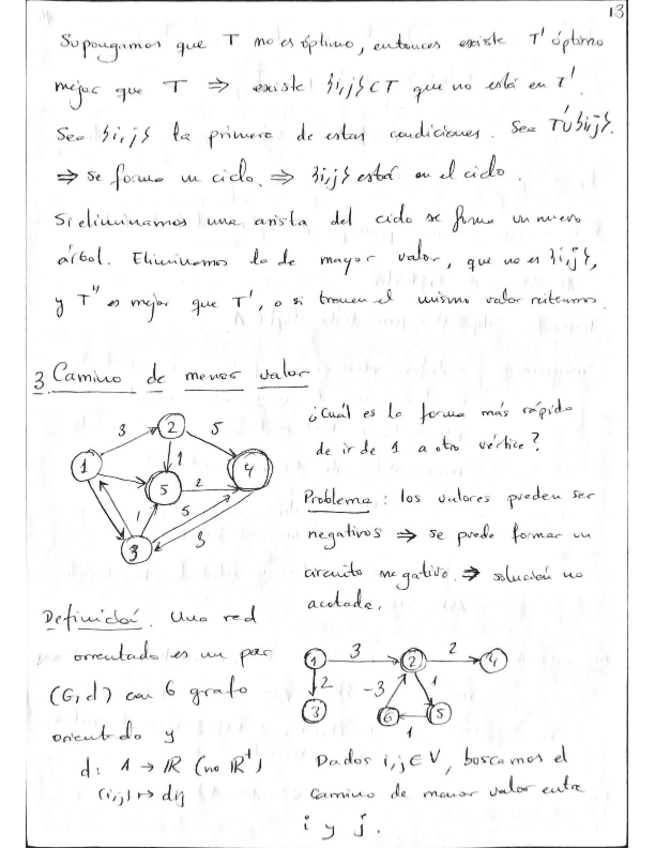 13
Supongamos que T no es óptimo, entonces existe T' óptimo
mejor que T ⇒ existe {i,j} ⊂ T que no está en T'.
Sea {i,j} la primera de estas condiciones. Sea T'∪{i,j}.
⇒ se forma un ciclo. ⇒ {i,j} está en el ciclo.
Si eliminamos una arista del ciclo se forma un nuevo
árbol. Eliminemos la de mayor valor, que no es {i,j},
y T'' es mejor que T', o si tienen el mismo valor reiteramos.
3 Camino de menor valor
3 2 5
1 1 4
5 2
1 5
3 3
¿Cuál es la forma más rápida
de ir de 1 a otro vértice?
Problema: los valores pueden ser
negativos ⇒ se puede formar un
circuito negativo. ⇒ solución no
acotada.
Definición. Una red
orientada es un par
(G,d) con G grafo
orientado y
d: A → ℝ (no ℝ⁺)
(i,j) ↦ dij
1 3 2 2 4
2 -3 1
3 6 5
1
Dados i,j ∈ V, buscamos el
camino de menor valor entre
i y j.